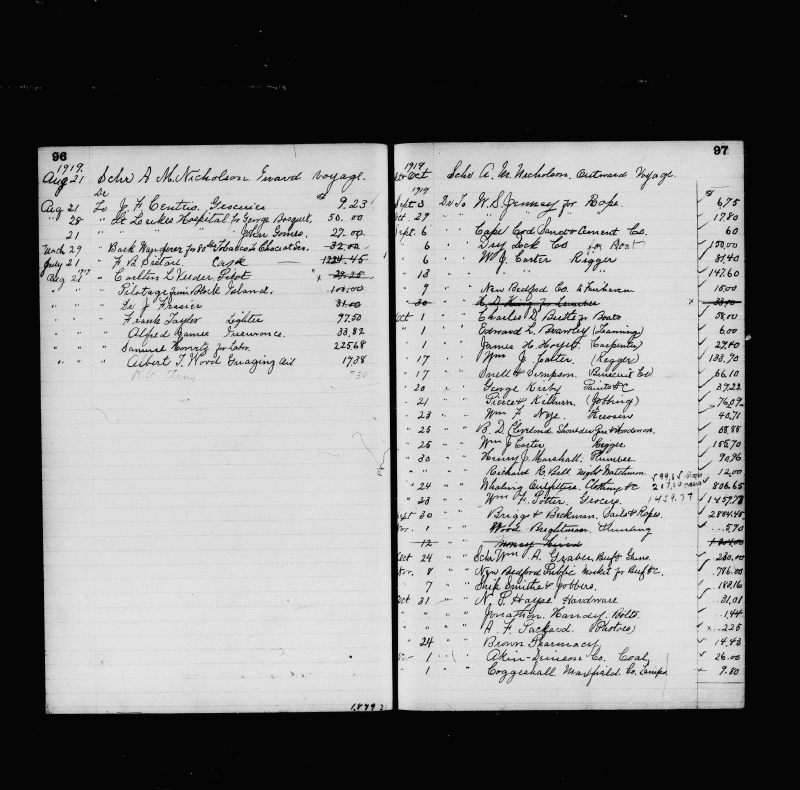 96
1919.
Aug 21 Schr A. M. Nicholson Inward voyage.
Dr
Aug 21 To J. F. Centrio. Groceries 9.23
" 28 " St Lukes Hospital for George Bosquet, 50.00
21 " " " John Gomes. 27.00
" Back Wages for 80 lbs Tobacco 32.00
July 21 " F. B. Sistare Cash 1224.45
Aug 21 " Carlton L. Veeder Pilot 39.25
" " " Pilotage from Block Island. 100.00
" " " Frazier 31.00
" " " Frank Taylor Lighter 97.50
" " " Alfred James Insurance. 33.82
" " " Samuel Horvitz for Labor 225.68
" " " Albert T. Wood Guaging oil 17.38
7.30
1,879
97
Oct Schr A. M. Nicholson. Outward Voyage.
1919
Sept 3 Dr To W. S. Jenney for Rope. 6.75
Oct. 27 " " " " 17.80
Sept. 6 " " Cape Cod Sand & Cement Co. 60
6 " " Dry Dock Co for Boat 150.00
6 " " W. J. Carter Rigger 31.40
13 " " " " 147.60
9 " " New Bedford Co to Fairhaven 10.00
30 " " for Lumber 33.00
Oct 1 " " Charles D. Beetle for Boats 58.00
" 1 " " Edward L. Brawley (Teaming) 6.00
" 1 " " James H. Carpenter 27.80
" 17 " " Wm J. Carter. (Rigger) 133.70
" 17 " " Snell & Simpson. (Biscuit Co) 66.10
" 20 " " George Kirby Paints &C 37.22
" 21 " " Pierce & Kilburn (Jobbing) 76.09
" 23 " " Wm F. Nye. 40.71
" 25 " " B. D. Cleveland. 68.88
" 25 " " Wm J Carter Rigger 155.70
" 30 " " Henry J. Marshall. Plumber 90.96
" " " " Richard R. Bell Night Watchman 12.00
" 24 " " Whaling Outfitters. Clothing &c 806.65
" 23 " " Wm F. Potter. Grocers 1459.77 1459.78
Sept 30 " " Briggs & Beckman. Sails & Ropes. 2884.45
Nov. 1 " " Wood Brightman. Plumbing 5.90
12 " "
Oct 24 " " Schr Wm A. Graber Beef & Gums. 230.00
Nov. 8 " " New Bedford Public Market for Beef &c. 786.00
7 " " Ship Smiths & Jobbers. 188.16
Oct 31 " " N. P. Hayes Hardware 31.01
" " " Jonathan Handy Bolts 1.44
" " " A. F. Packard. (Photos) 2.25
" 24 " " Brown Pharmacy 14.43
Nov 1 " " Akin-Denison Co. Coal, 26.00
" 1 " " Coggeshall Mansfield. Co. Lamps. 9.80